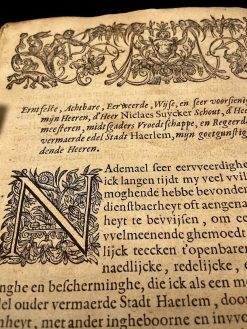 Erntfeste, Achtbare, Eerweerde, Wijse, en seer voorsienig
mijn Heeren, d'Heer Niclaes Suycker Schout, d'H
meesteren, midtsgaders Vroedschappe, en Regeerd
vermaerde edel Stadt Haerlem, mijn goetgunstig
dende Heeren.
NAdemael seer eervveerdighe
ick langen tijdt my veel vvil
moghende hebbe bevonde
dienstbaerheyt oft aengena
heyt te bevvijsen, om e
vvelmeenende ghemoedt
lijck teecken t'openbaren
naedlijcke, redelijcke, o
nghe en bescherminghe, die ick als een m
del ouder vermaerde Stadt Haerlem, door
t, met ander ingheboorne en invv